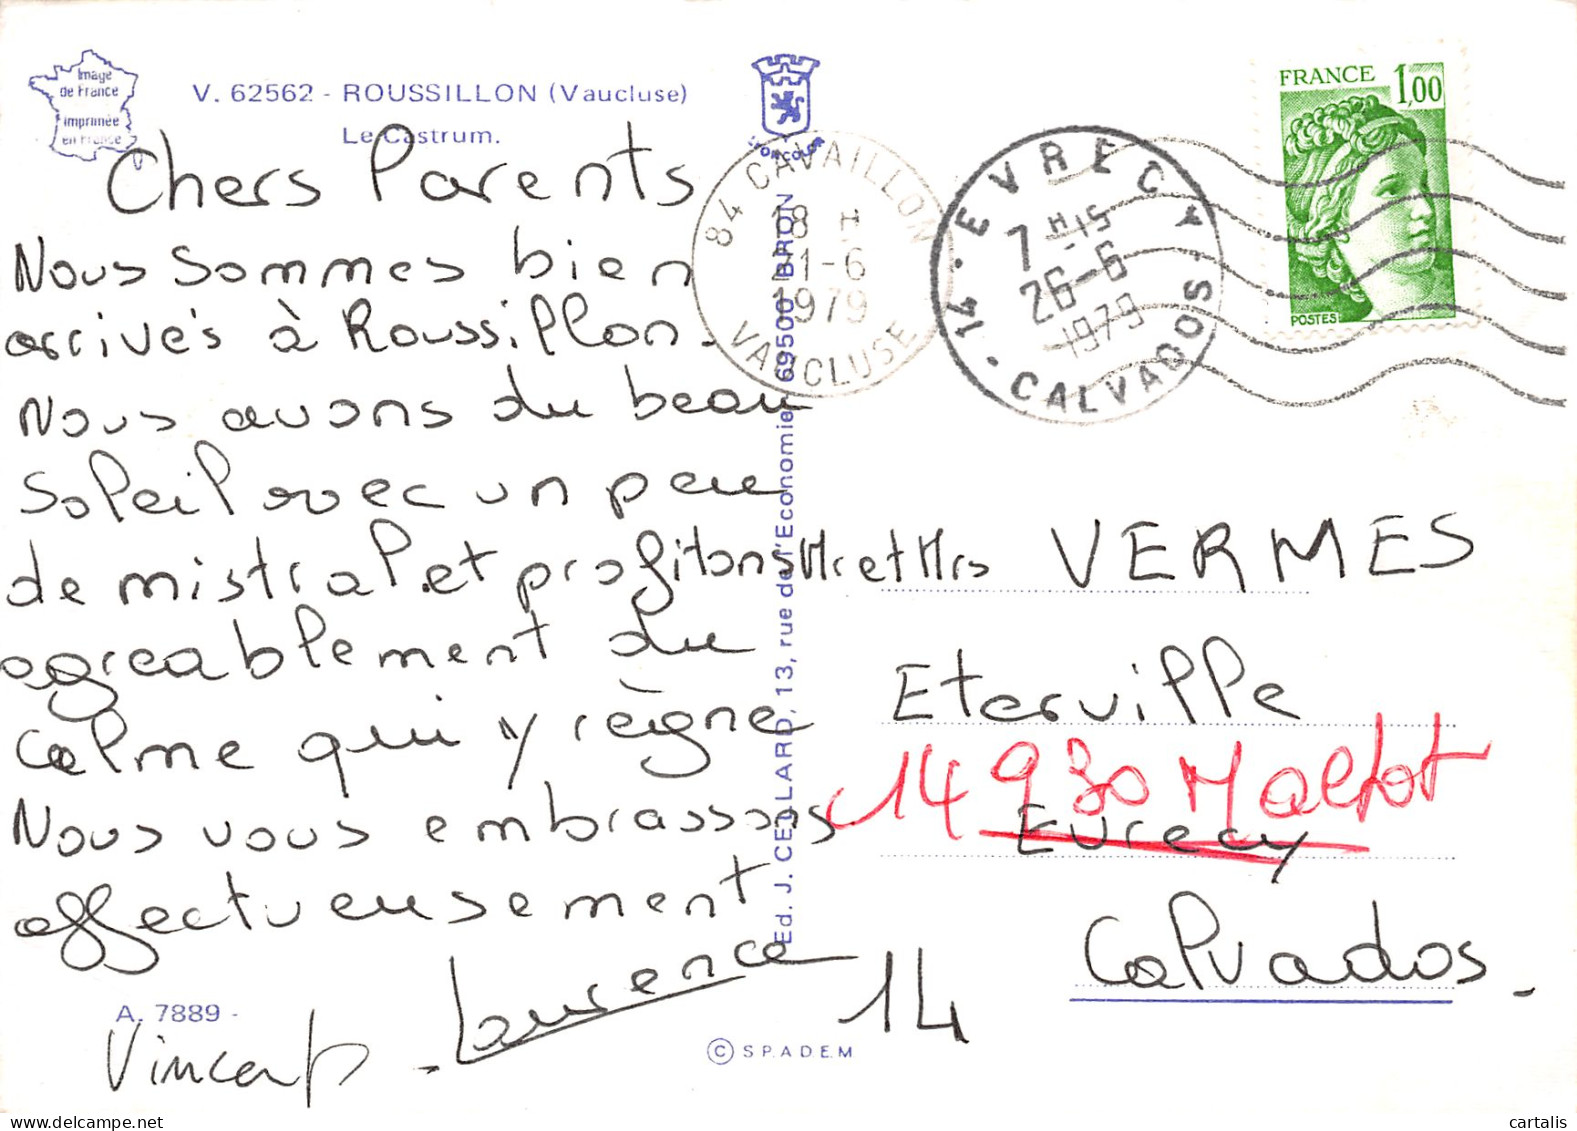 Image
de France
imprimée
en France
V. 62562 - ROUSSILLON (Vaucluse)
Le Castrum.
LYONCOLOR
Chers Parents
Nous sommes bien
arrivés à Roussillon.
Nous avons du beau
soleil avec un peu
de mistral et profitons
agreablement du
calme qui y règne
Nous vous embrassons
affectueusement
Laurence
Vincent
A. 7889 -
© S.P.A.D.E.M
Ed. J. CELLARD, 13, rue de l'Economie 69500 BRON
84 CAVAILLON
18 H
1-6
1979
VAUCLUSE
14 - EVRECY
7 H 15
26-6
1979
CALVADOS
FRANCE 1,00
POSTES
Mr et Mrs VERMES
Eterville
14 930 Maltot
Evrecy
14 Calvados.
cartalis